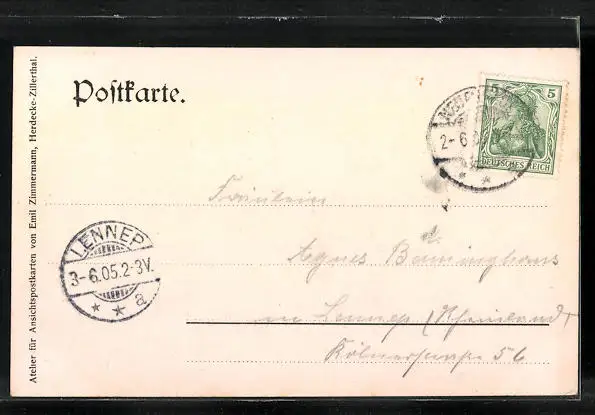 Postkarte.
5
DEUTSCHES REICH
2-6
Fräulein
Agnes
in Lennep (Rheinland)
Kölnerstrasse 56
LENNEP
3-6.05.2-3V.
* * a
Atelier für Ansichtspostkarten von Emil Zimmermann, Herdecke-Zillerthal.